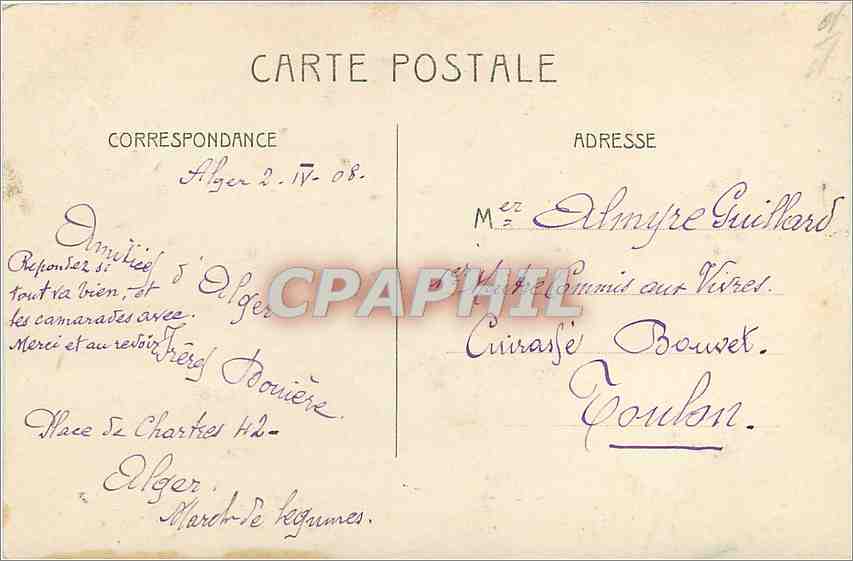 CARTE POSTALE
CORRESPONDANCE
Alger 2-IV-08.
Amitiés d'Alger
Repondez si
tout va bien, et
les camarades avec.
Merci et au revoir
Frères Bouière
Place de Chartres 42-
Alger.
March de legumes.
ADRESSE
Mer Almyre Guillard
1er Maitre Commis aux Vivres.
Cuirassé Bouvet.
Toulon.
CPAPHIL